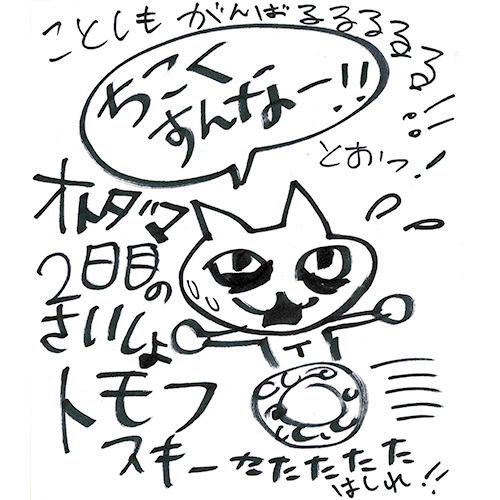 ことしも がんばるるるるる!!
ちこく
すんなよー!!
とおっ!
オトダマ
2日目の
さいしょ
トモフ
スキー
たたたたた
はしれ!!